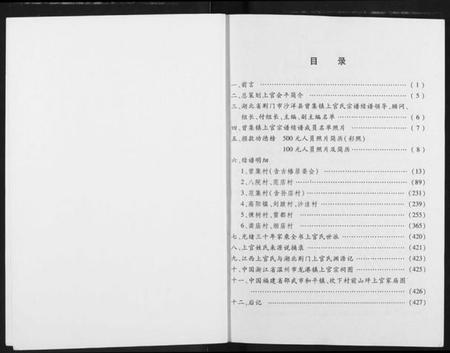 目 录
一、前言 ……………………………………………… (1)
二、总策划上官会平简介 ……………………………… (5)
三、湖北省荆门市沙洋县曾集镇上官氏宗谱续谱领导、顾问、
组长、付组长、主编、副主编名单 …………………… (6)
四、曾集镇上官宗谱续谱成员名单照片 ……………… (7)
五、捐款功德榜 500元人员照片简历(彩照)
100元人员照片及简历 …………………… (8)
六、续谱明细
1、曾集村(含古椿居委会) …………………… (13)
2、八院村、范店村 …………………………… (89)
3、范集村(含孙店村) ………………………… (231)
4、高阳镇、刘坡村、沙洼村 …………………… (239)
5、槐树村、雷都村 …………………………… (255)
6、黄庙村、烟店村 …………………………… (365)
七、光绪三十年家乘全书上官氏世派 ……………… (420)
八、上官姓氏来源说摘录 …………………………… (421)
九、江西上官氏与湖北荆门上官氏渊源记 ………… (423)
十、中国浙江省温州市龙港镇上官宗祠图 ………… (425)
十一、中国福建省邵武市和平镇,坎下村前山坪上官家庙图
……………………………………………………… (426)
十二、后记 …………………………………………… (427)